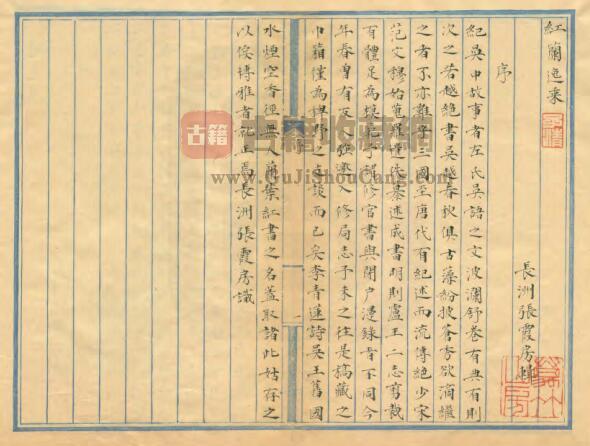 紅蘭逸乘
長洲張霞房輯
序
紀吳中故事者左氏吳語之文波瀾舒卷有典有則
次之若越絕書吳越春秋俱古藻紛披蒼秀欲滴繼
之者不亦難乎三國至唐代有紀述而流傳絕少宋
范文穆始蒐羅遺佚纂述成書明則盧王二志剪裁
有體足為 修官書與閉戶漫錄者不同今
年春曾有友人 邀入修局志予未之往是稿藏之
巾箱僅為稗野之 談而已矣李青蓮詩吳王舊國
水煙空香徑無人蘭葉紅書之名蓋取諸此姑存之
以俟博雅者就正焉長洲張霞房識
古籍收藏網
www.GuJiShouCang.com